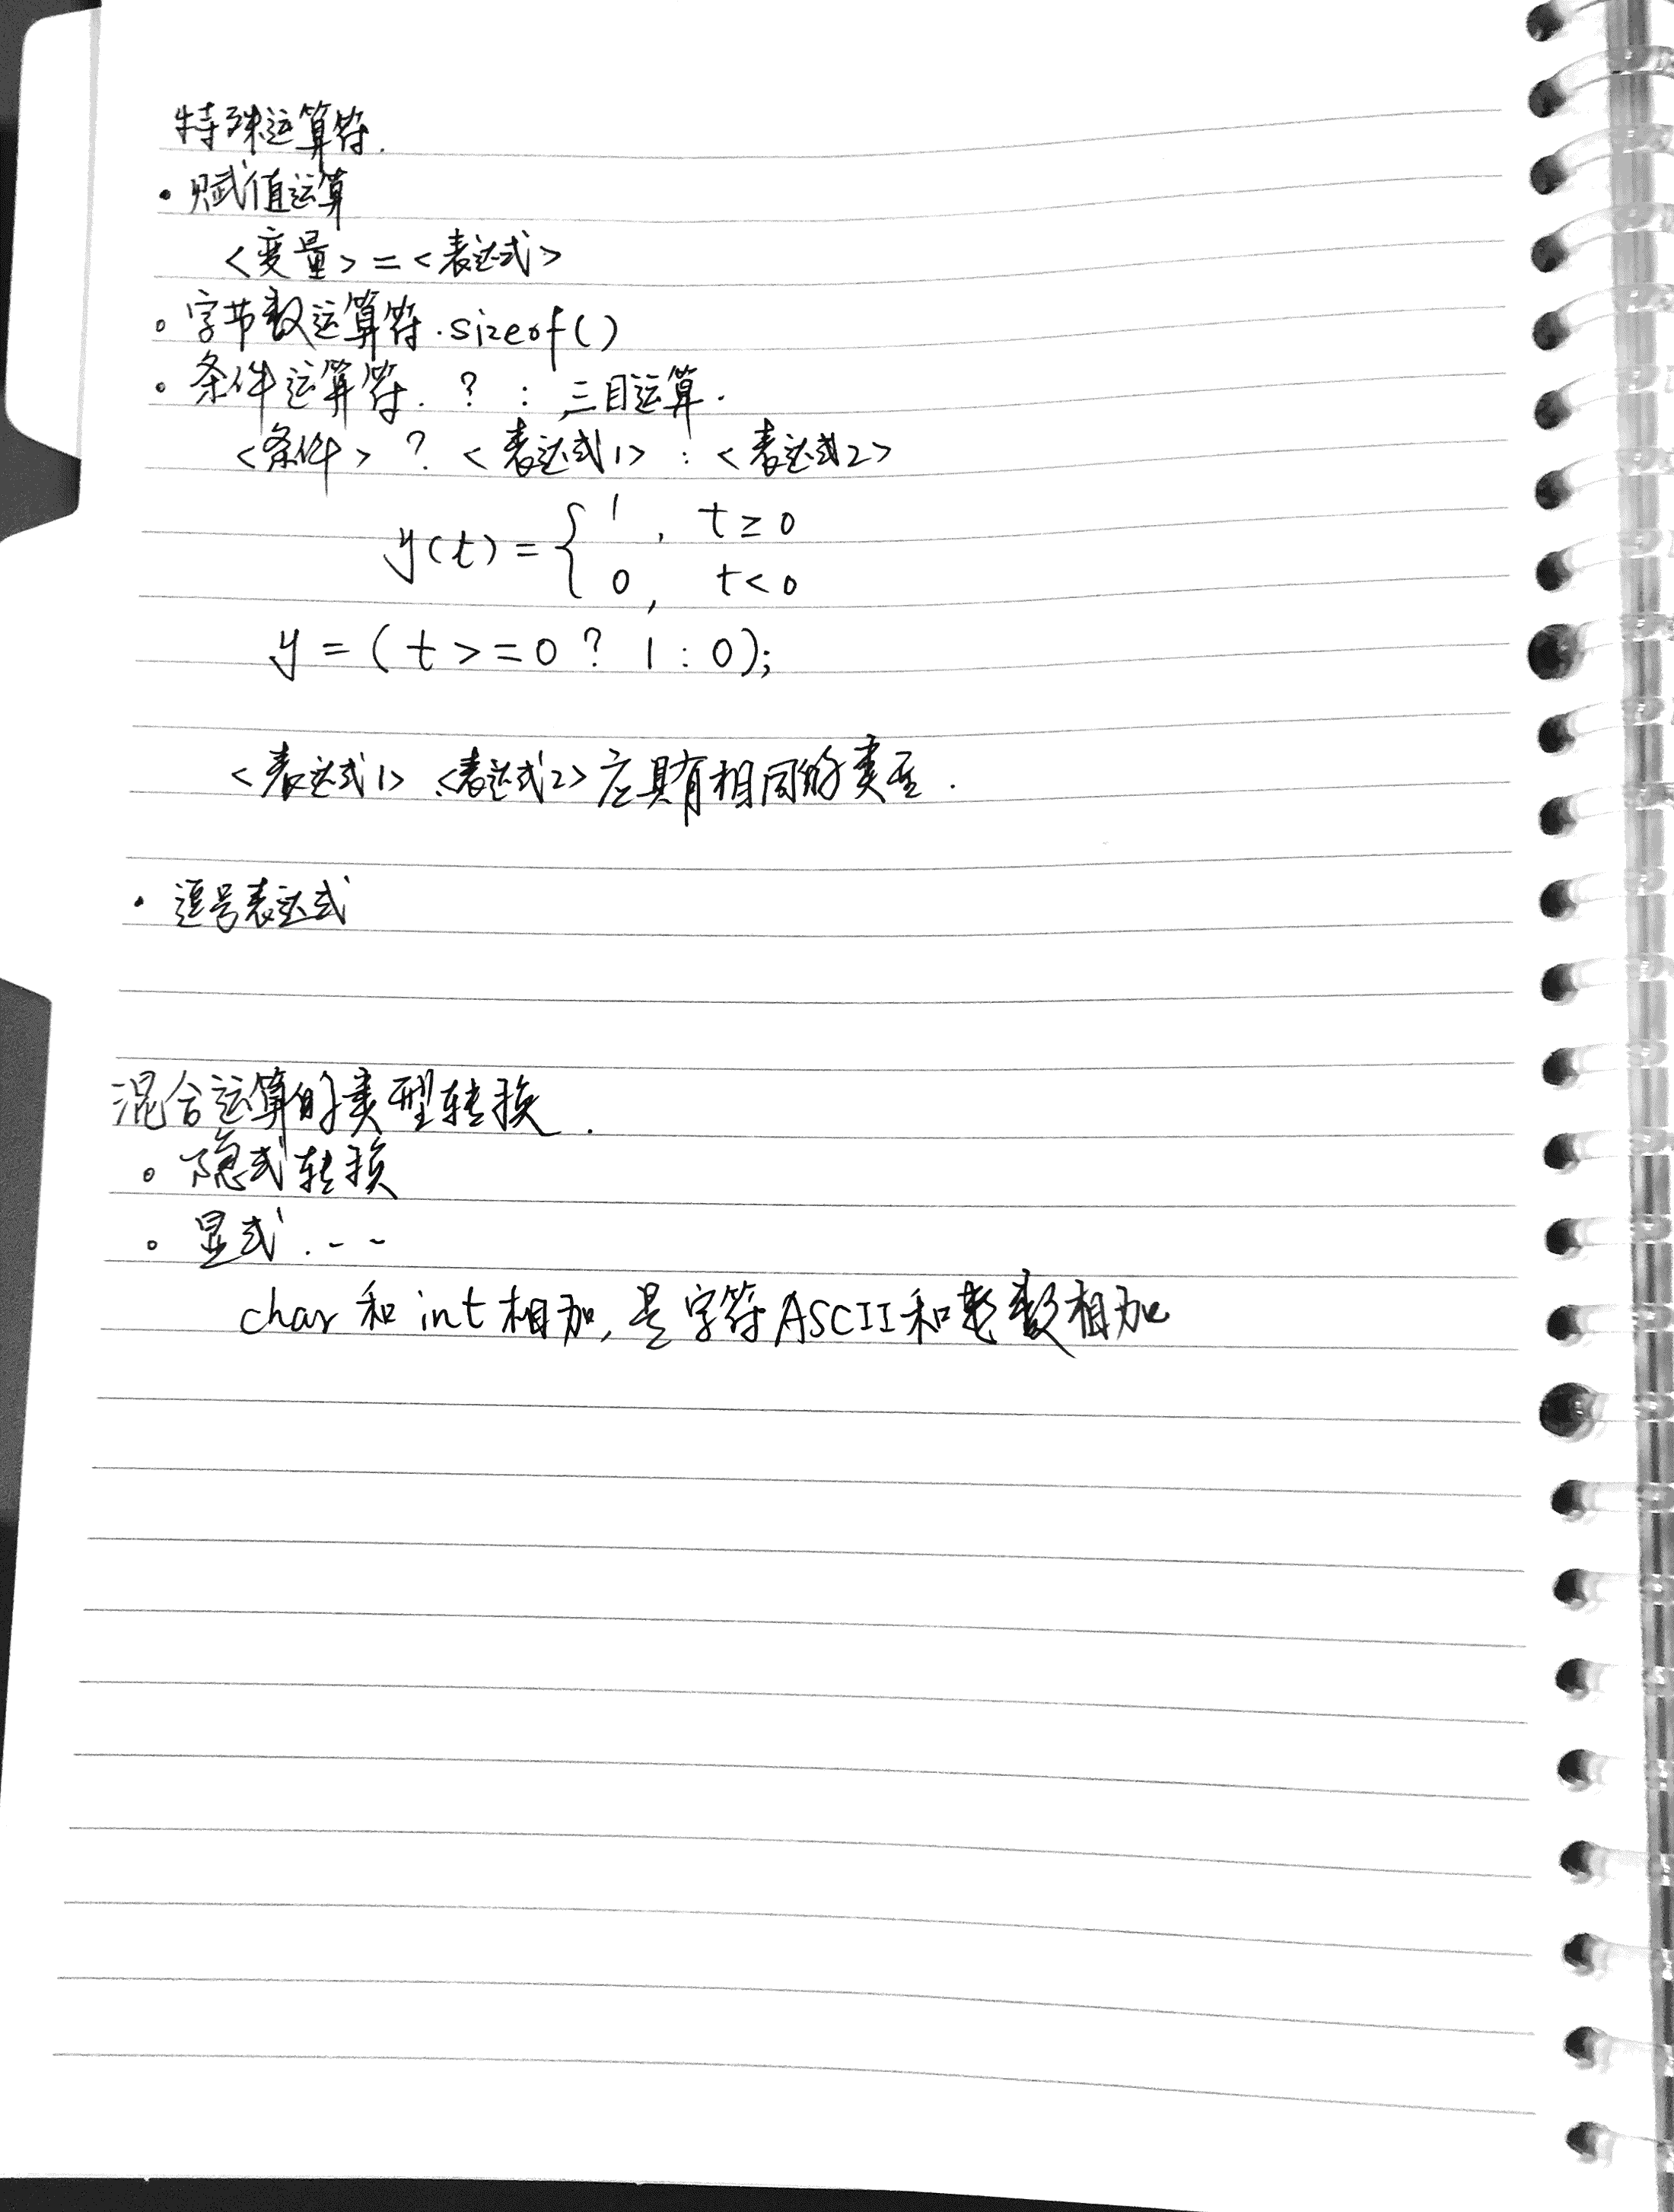 特殊运算符.
· 赋值运算
<变量> = <表达式>
。字节数运算符.sizeof()
· 条件运算符. ? : ,三目运算.
<条件> ? <表达式1> : <表达式2>
y(t) = { 1 , t ≥ 0
0 , t < 0
y = ( t > = 0 ? 1 : 0 );
<表达式1>、<表达式2>应具有相同的类型.
· 逗号表达式
混合运算的类型转换.
。隐式转换
。显式...
char 和 int 相加,是字符ASCII和整数相加